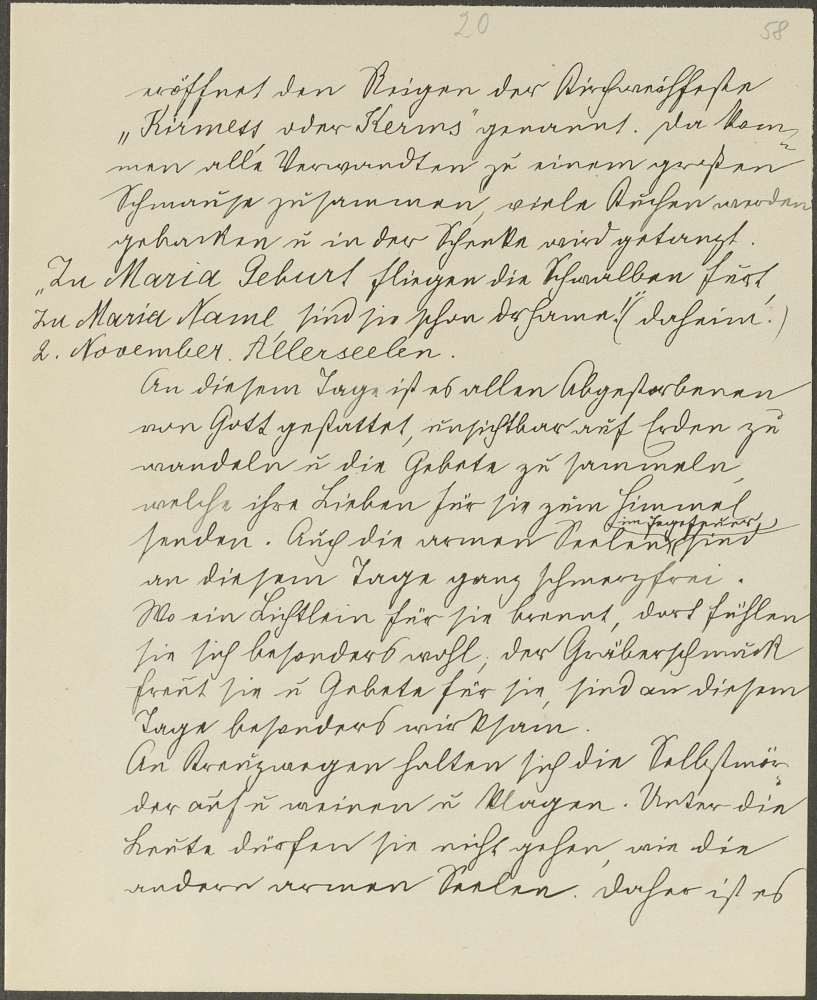 20
58
eröffnet den Reigen der Kirchweihfeste
„Kirmess oder Kerms" genannt. Da kom-
men alle Verwandten zu einem großen
Schmause zusammen, viele Kuchen werden
gebacken u in der Schenke wird getanzt.
„Zu Maria Geburt fliegen die Schwalben furt,
Zu Maria Name, sind sie schon drhame!" (daheim.)
2. November. Allerseelen.
An diesem Tage ist es allen Abgestorbenen
von Gott gestattet, unsichtbar auf Erden zu
wandeln u die Gebete zu sammeln,
welche ihre Lieben für sie zum Himmel
senden. Auch die armen Seelen im Fegefeuer, sind
an diesem Tage ganz schmerzfrei.
Wo ein Lichtlein für sie brennt, dort fühlen
sie sich besonders wohl, der Gräberschmuck
freut sie u Gebete für sie, sind an diesem
Tage besonders wirksam.
An Kreuzwegen halten sich die Selbstmör-
der auf u weinen u klagen. Unter die
Leute dürfen sie nicht gehen, wie die
andern armen Seelen. Daher ist es